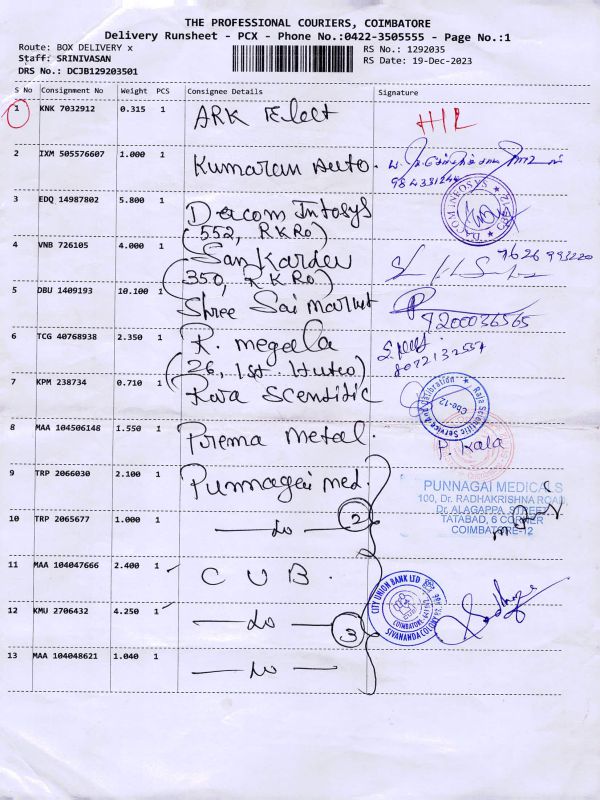 THE PROFESSIONAL COURIERS, COIMBATORE
Delivery Runsheet - PCX - Phone No.:0422-3505555 - Page No.:1
Route: BOX DELIVERY x
RS No.: 1292035
Staff: SRINIVASAN
RS Date: 19-Dec-2023
DRS No.: DCJB129203501
S No Consignment No Weight PCS Consignee Details Signature
1 KNK 7032912 0.315 1 ARK Elect HIL
2 IXM 505576607 1.000 1 Kumaran Auto.
3 EDQ 14987802 5.800 1 Dacom Infosys
(552, R.K Ro)
DACOM INFOSYS CBE-12
4 VNB 726105 4.000 1 San Karder
(350, R.K Ro)
7626993220
5 DBU 1409193 10.100 1 Shree Sai Market
9200036565
6 TCG 40768938 2.350 1 R. megala
(26, 1st
8072132554
7 KPM 238734 0.710 1 Raja Scentific
Raja Scientific Service And Calibration Cbe-12
8 MAA 104506148 1.550 1 Prema metal.
P. Kala
9 TRP 2066030 2.100 1 Punnagai med.
PUNNAGAI MEDICALS
100, Dr. RADHAKRISHNA ROAD,
Dr. ALAGAPPA STREET
TATABAD, 6 CORNER
COIMBATORE-12
10 TRP 2065677 1.000 1 — do — 2
11 MAA 104047666 2.400 1 C U B.
CITY UNION BANK LTD
COIMBATORE
SIVANANDA COLONY
12 KMU 2706432 4.250 1 — do — 3
13 MAA 104048621 1.040 1 — do —